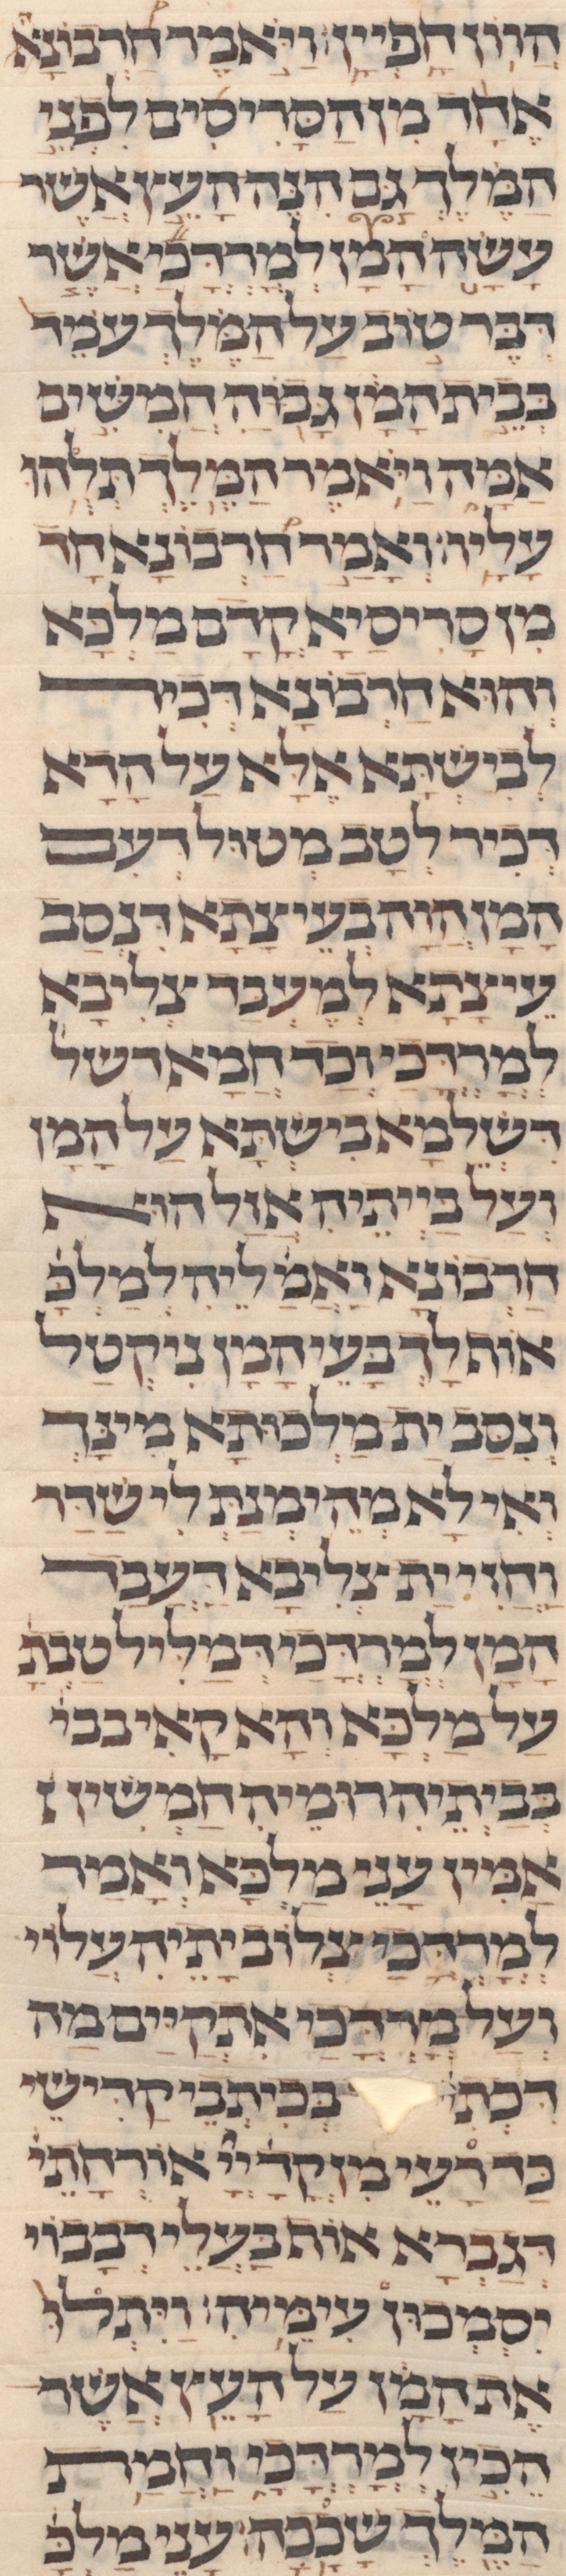 הֲווֹן חָפְיָין׃ וַיֹּאמֶר חַרְבוֹנָא
אֶחָד מִן הַסָּרִיסִים לִפְנֵי
הַמֶּלֶךְ גַּם הִנֵּה הָעֵץ אֲשֶׁר
עָשָׂה הָמָן לְמָרְדֳּכַי אֲשֶׁר
דִּבֶּר טוֹב עַל הַמֶּלֶךְ עֹמֵד
בְּבֵית הָמָן גָּבוֹהַּ חֲמִשִּׁים
אַמָּה וַיֹּאמֶר הַמֶּלֶךְ תְּלֻהוּ
עָלָיו׃ וְאָמַר חַרְבוֹנָא חַד
מִן סָרִיסַיָּא קֳדָם מַלְכָּא
וְהוּא חַרְבוֹנָא דְּכִיר
לְבִישְׁתָּא אֶלָּא עַל הָדָא
דְּכִיר לְטָב מְטוּל דְּעִם
הָמָן הֲוָה בְּעֵיצָתָא דִּנְסַב
עֵיצָתָא לְמֶעְבַּד צְלִיבָא
לְמָרְדֳּכַי וְכַד חֲמָא דְשֵׁל
דִּשְׁלֵמָא בִישְׁתָּא עַל הָמָן
וְעַל בַּיְתֵיהּ אֲזַל הוּא
חַרְבוֹנָא וַאֲמַ׳ לֵיהּ לְמַלְכָּ׳
אוֹת לָךְ בָּעֵי הָמָן נִיקְטַל
וְנִסַּב יַת מַלְכוּתָא מִינָּךְ
וְאִי לָא מְהֵימְנַתְּ לִי שַׁדַּר
וַחֲזִי יַת צְלִיבָא דַּעֲבַד
הָמָן לְמָרְדֳּכַי דְּמַלֵּיל טָבְתָ׳
עַל מַלְכָּא וְהָא קָאִי בְּבֵי׳
בְּבֵיתֵיהּ רוּמֵיהּ חַמְשִׁין
אַמִּין עָנֵי מַלְכָּא וְאָמַר
לְמָרְדֳּכַי צְלוֹב יָתֵיהּ עֲלוֹי
וְעַל מָרְדֳּכַי אִתְקַיַּים מַה
דִּכְתִ׳ בְּכִיתְבֵי קַדִּישֵׁי
כַּד רָעֵי מִן קֳדָ׳ יְיָ׳ אוֹרְחָתֵי׳
דְּגַבְרָא אוֹת בַּעֲלֵי דְבָבוֹי
יִסְמְכוּן עִימֵּיהּ׃ וַיִּתְלוּ
אֶת הָמָן עַל הָעֵץ אֲשֶׁר
הֵכִין לְמָרְדֳּכָי וַחֲמַת
הַמֶּלֶךְ שָׁכָכָה׃ עָנֵי מַלְכָּ׳